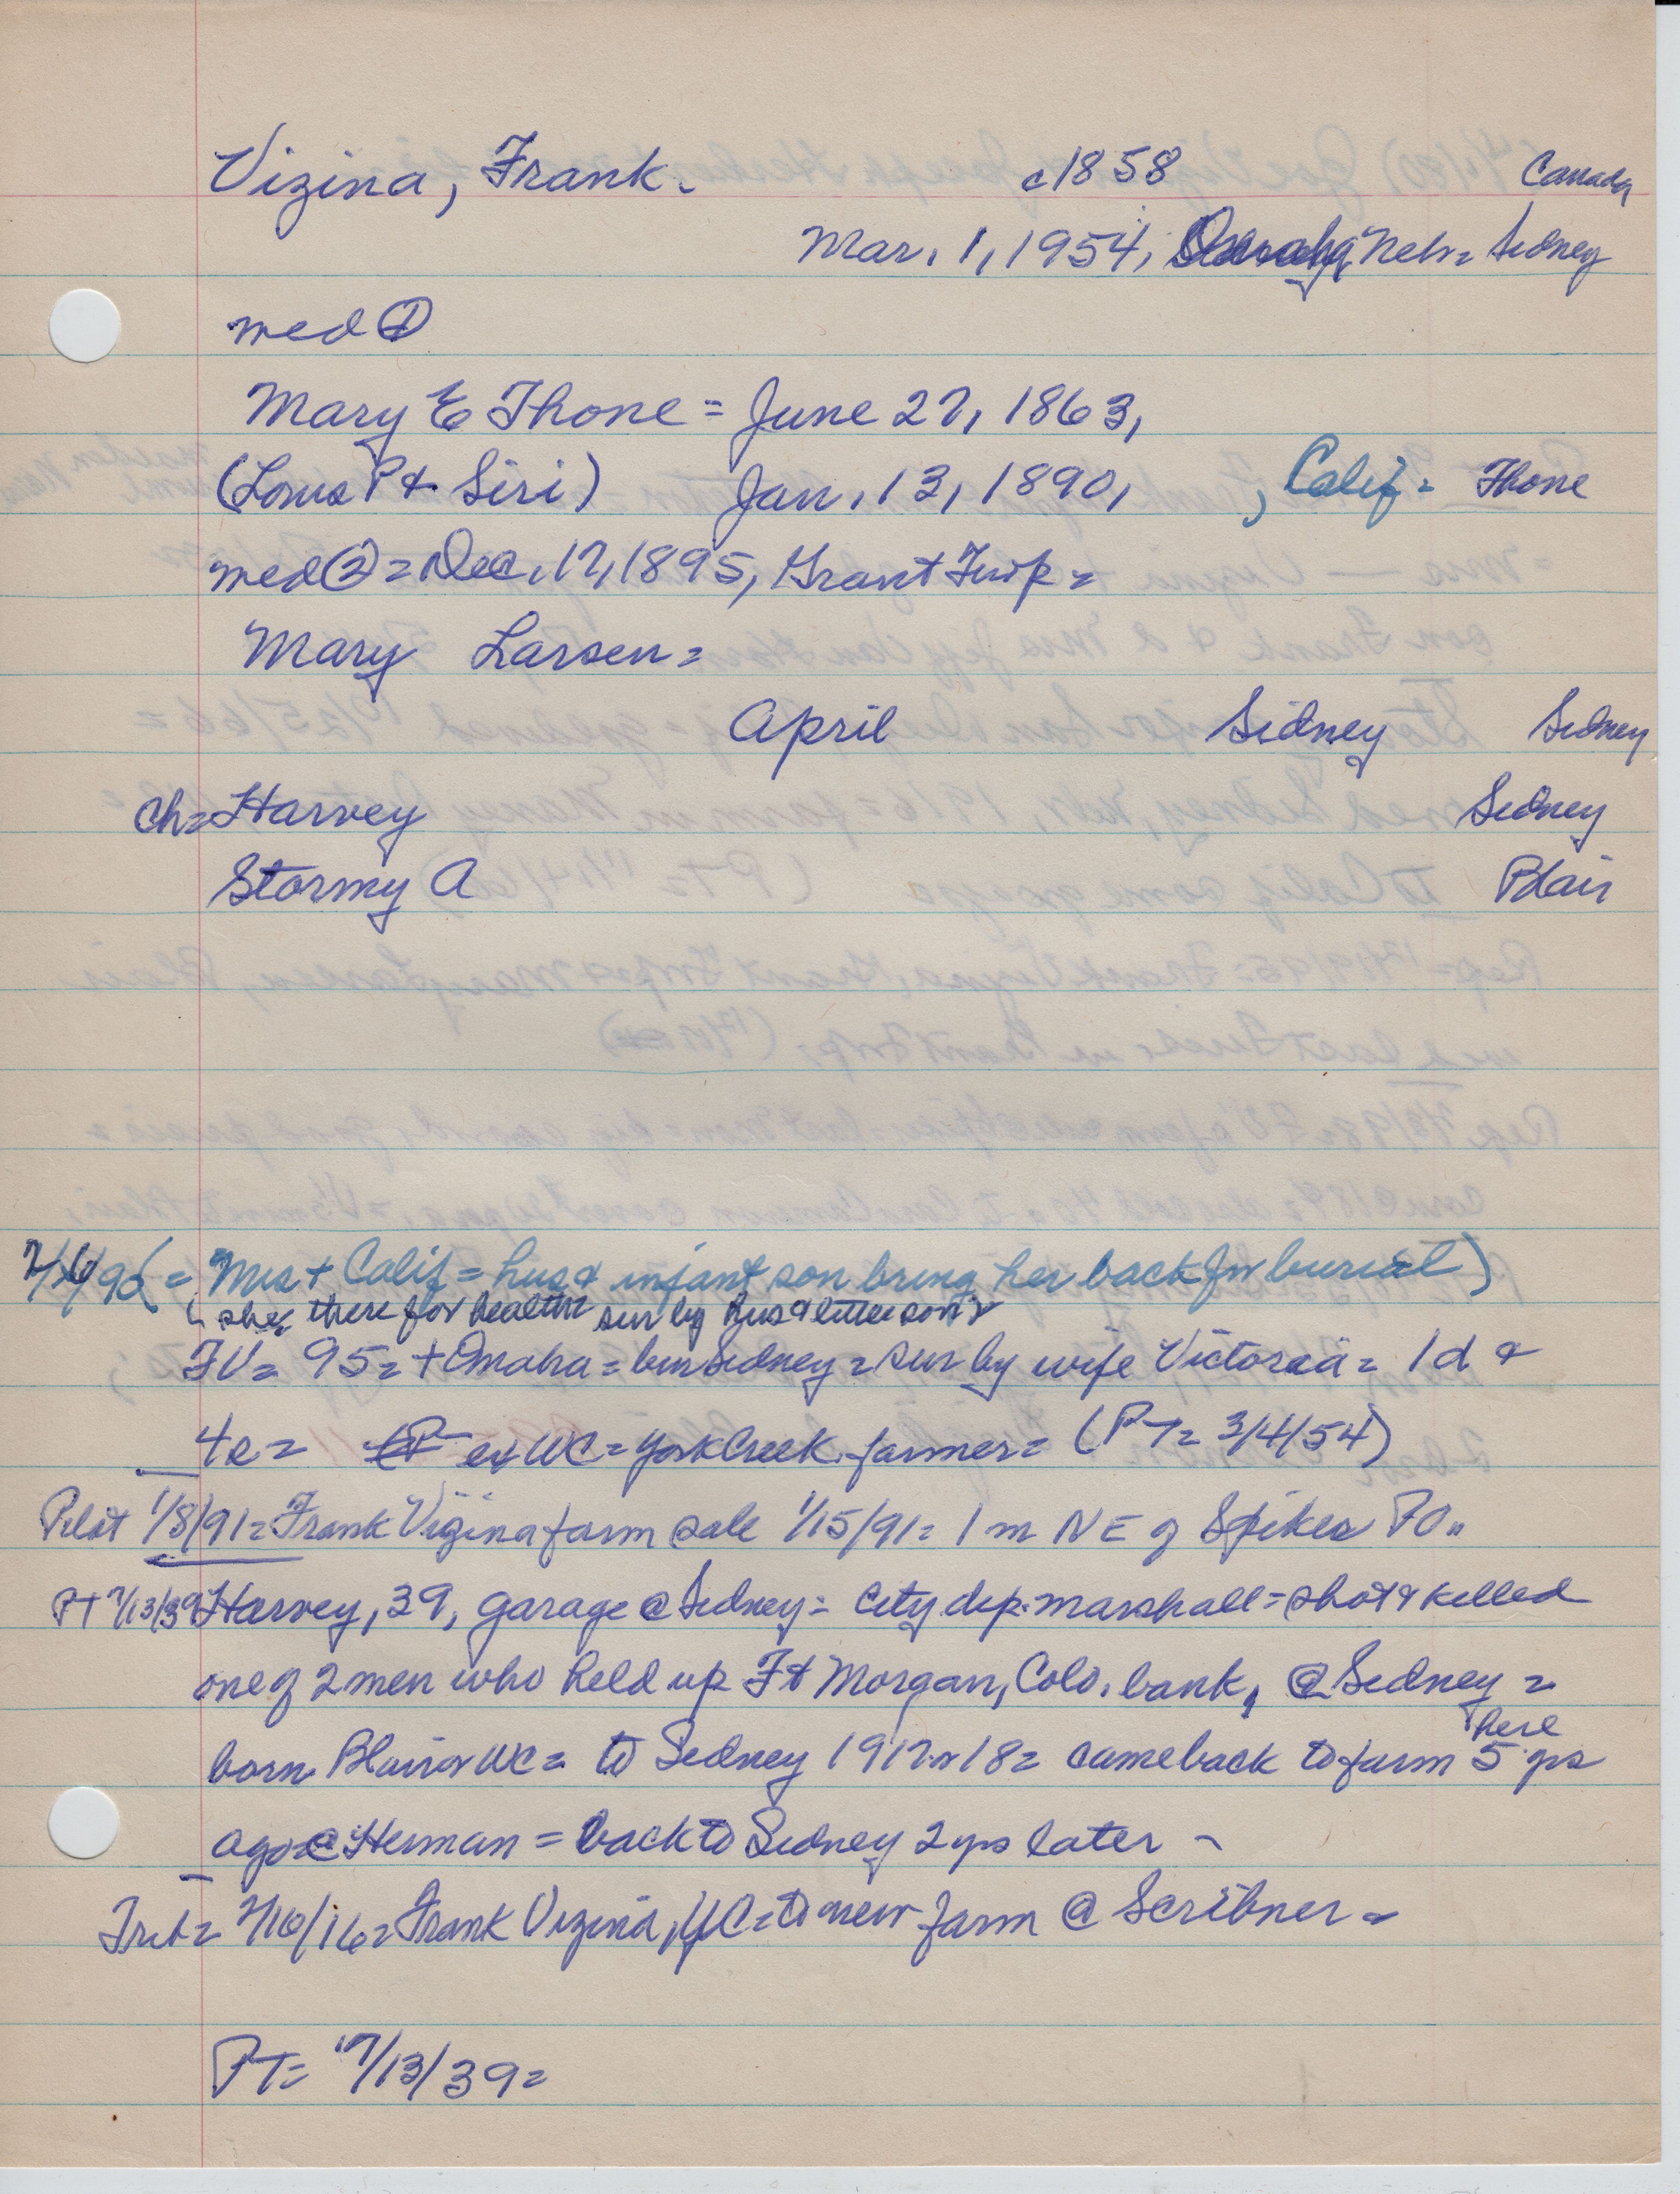 Vizina, Frank. c1858 Canada
Mar. 1, 1954, Omaha, Nebr= Sidney
med ①
Mary E Thone = June 27, 1863,
(Louis P & Siri) Jan. 13, 1890, , Calif = Thone
med ② = Dec. 17, 1895, Grant Twp =
Mary Larsen =
April Sidney Sidney
ch= Harvey Sidney
Stormy A Blair
= Mrs + Calif = hus & infant son bring her back for burial)
there for health= sur by hus & little son
FV= 95= + Omaha = bur Sidney = sur by wife Victoria = 1d &
4s = ex WC = York Creek farmer = (PT= 3/4/54)
Pilot 1/8/91= Frank Vizina farm sale 1/15/91= 1 m NE of Spiker PO..
PT 7/13/39 Harvey, 39, garage @ Sidney = city dep. marshall = shot & killed
one of 2 men who held up Ft Morgan, Colo. bank, @ Sidney =
here
born Blair or WC = to Sidney 1917 or 18= came back to farm 5 yrs
ago @ Herman = back to Sidney 2 yrs later -
Trib= 2/10/16= Frank Vizina, YC= to new farm @ Scribner =
PT= 7/13/39=